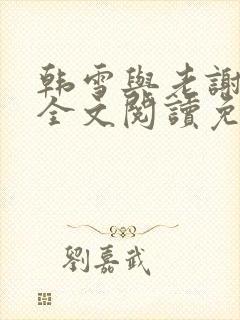 韩雪與老謝
全文閱讀免
劉嘉武